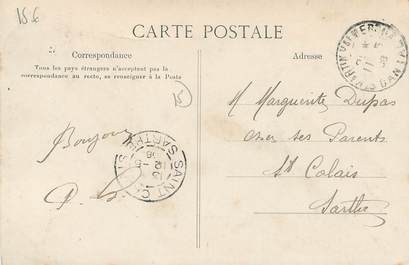 156
CARTE POSTALE
Correspondance
Tous les pays étrangers n'acceptent pas la
correspondance au recto, se renseigner à la Poste
Adresse
15
Bonjour
M Marguerite Dupas
chez ses Parents
St Calais
Sarthe
SAINT-C
SARTHE